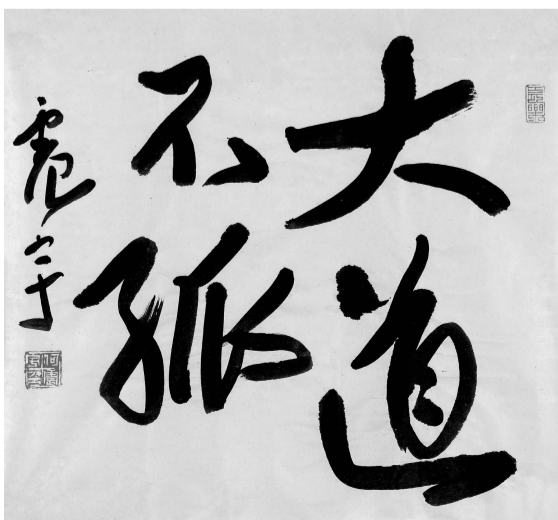 大道
不孤